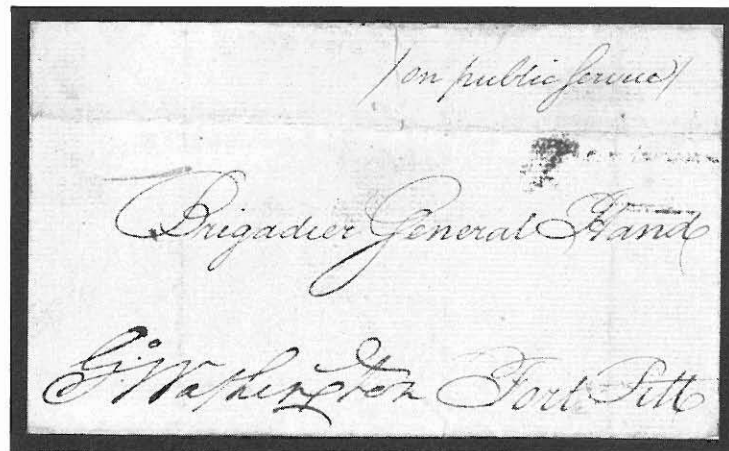 /on public Service/
Brigadier General Hand
Go: Washington Fort Pitt